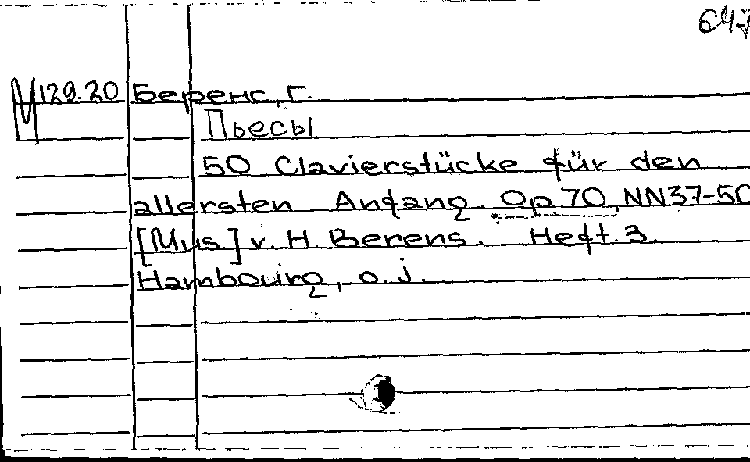 647
М129.20 Беренс, Г.
Пьесы
50 Clavierstücke für den
allersten Anfang. Op 70, NN37-50
[Mus] v. H. Berens. Heft. 3
Hambourg, o. j.